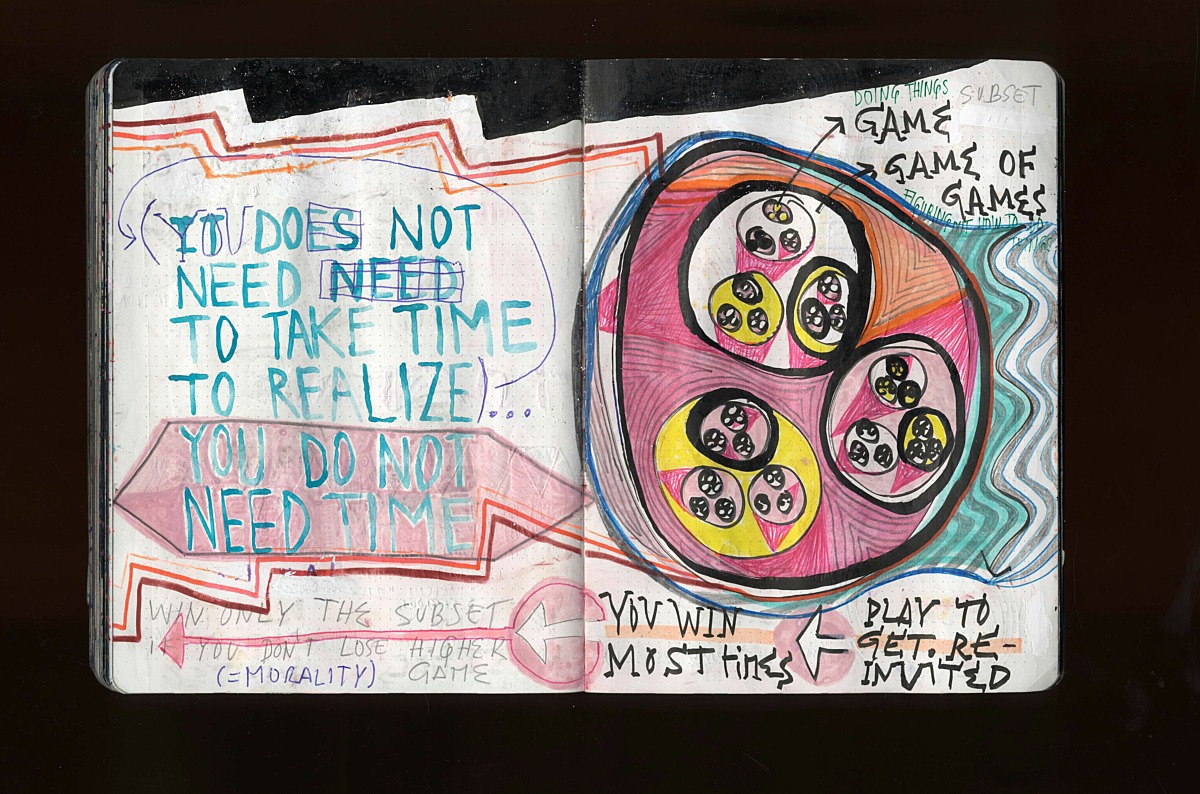 (IT DOES NOT
NEED NEED
TO TAKE TIME
TO REALIZE)...
YOU DO NOT
NEED TIME
WIN ONLY THE SUBSET
IF YOU DON'T LOSE HIGHER
(=MORALITY) GAME
DOING THINGS SUBSET
GAME
GAME OF
GAMES
FIGURING OUT HOW TO
THINGS
YOU WIN
MOST timES
PLAY TO
GET. RE-
INVITED